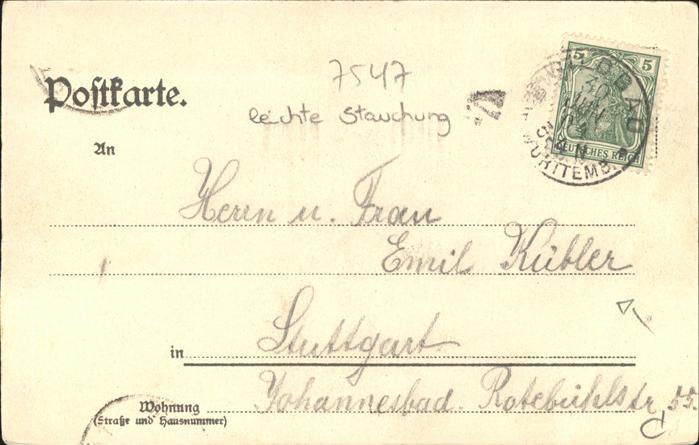 7547
leichte Stauchung
Postkarte.
5 5
30
JUN
04
3-4 N
WÜRTTEMB.
DEUTSCHES REICH
An
Herrn u. Frau
Emil Kübler
in Stuttgart
Wohnung
(Straße und Hausnummer)
Johannesbad. Rotebühlstr. 55.